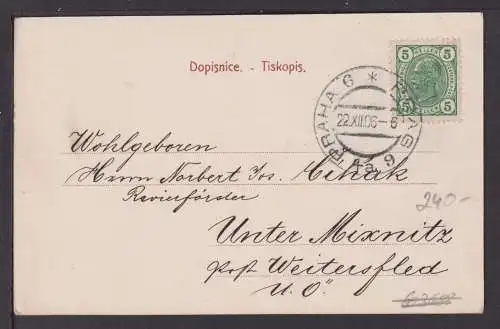 Dopisnice. - Tiskopis.
5 HELLER 5
5 5
PRAHA 6 * PRAG
22.XII.06-6
*4a* 9
Wohlgeboren
Herrn Norbert Jos. Cihak
Revierförder
Unter Mixnitz
post Weitersfled
U. Ö"
240-